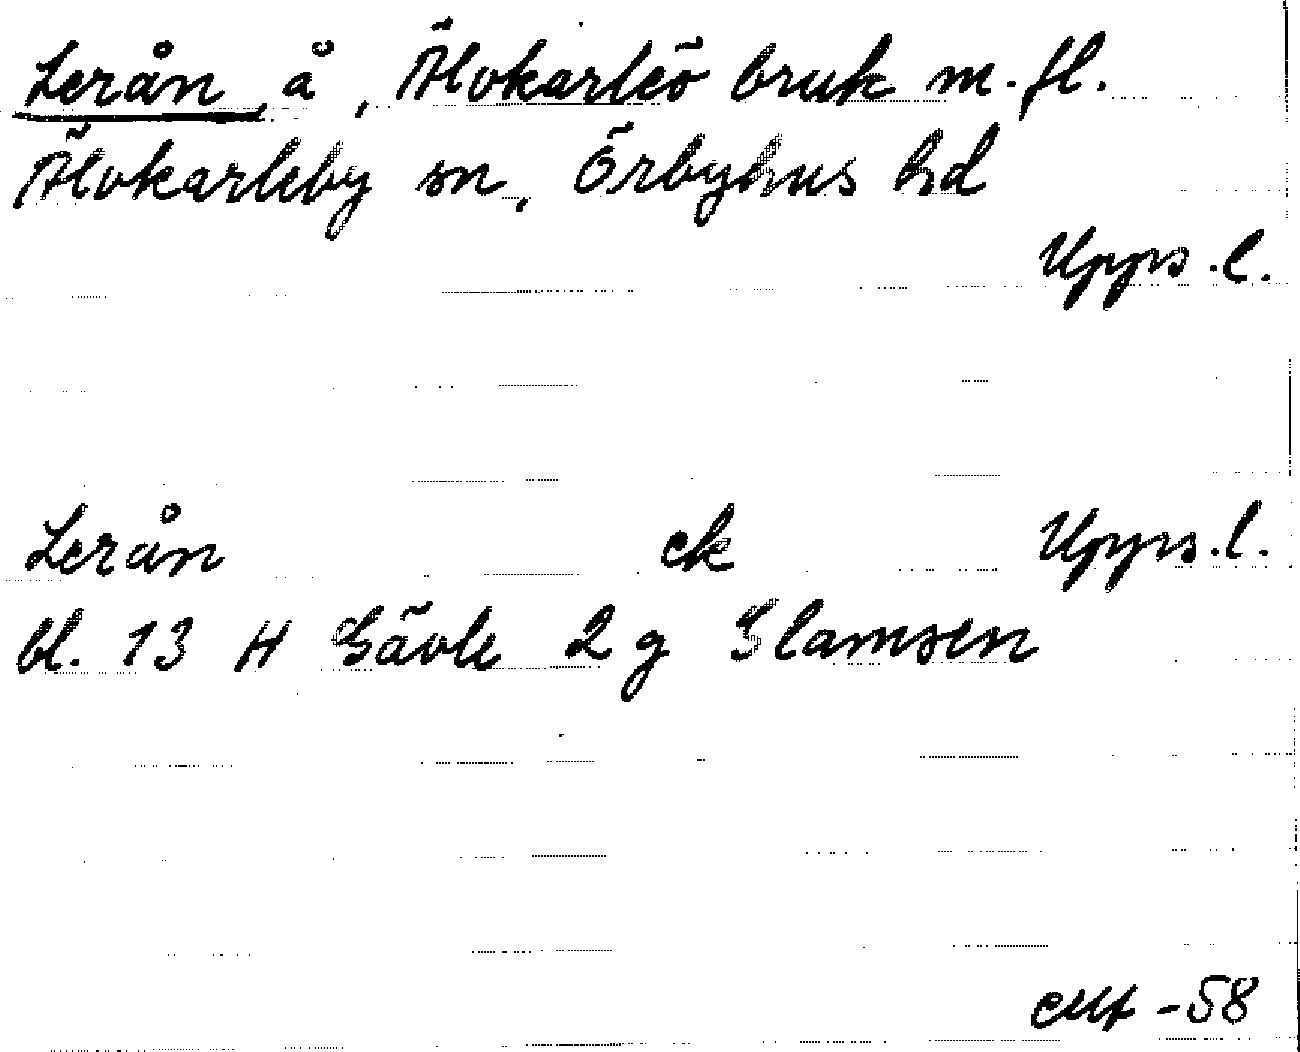 Lerån, å, Älvkarleö bruk m.fl.
Älvkarleby sn, Örbyhus hd
Upps.l.
Lerån ek Upps.l.
bl. 13 H Gävle 2 g Slamsen
-58